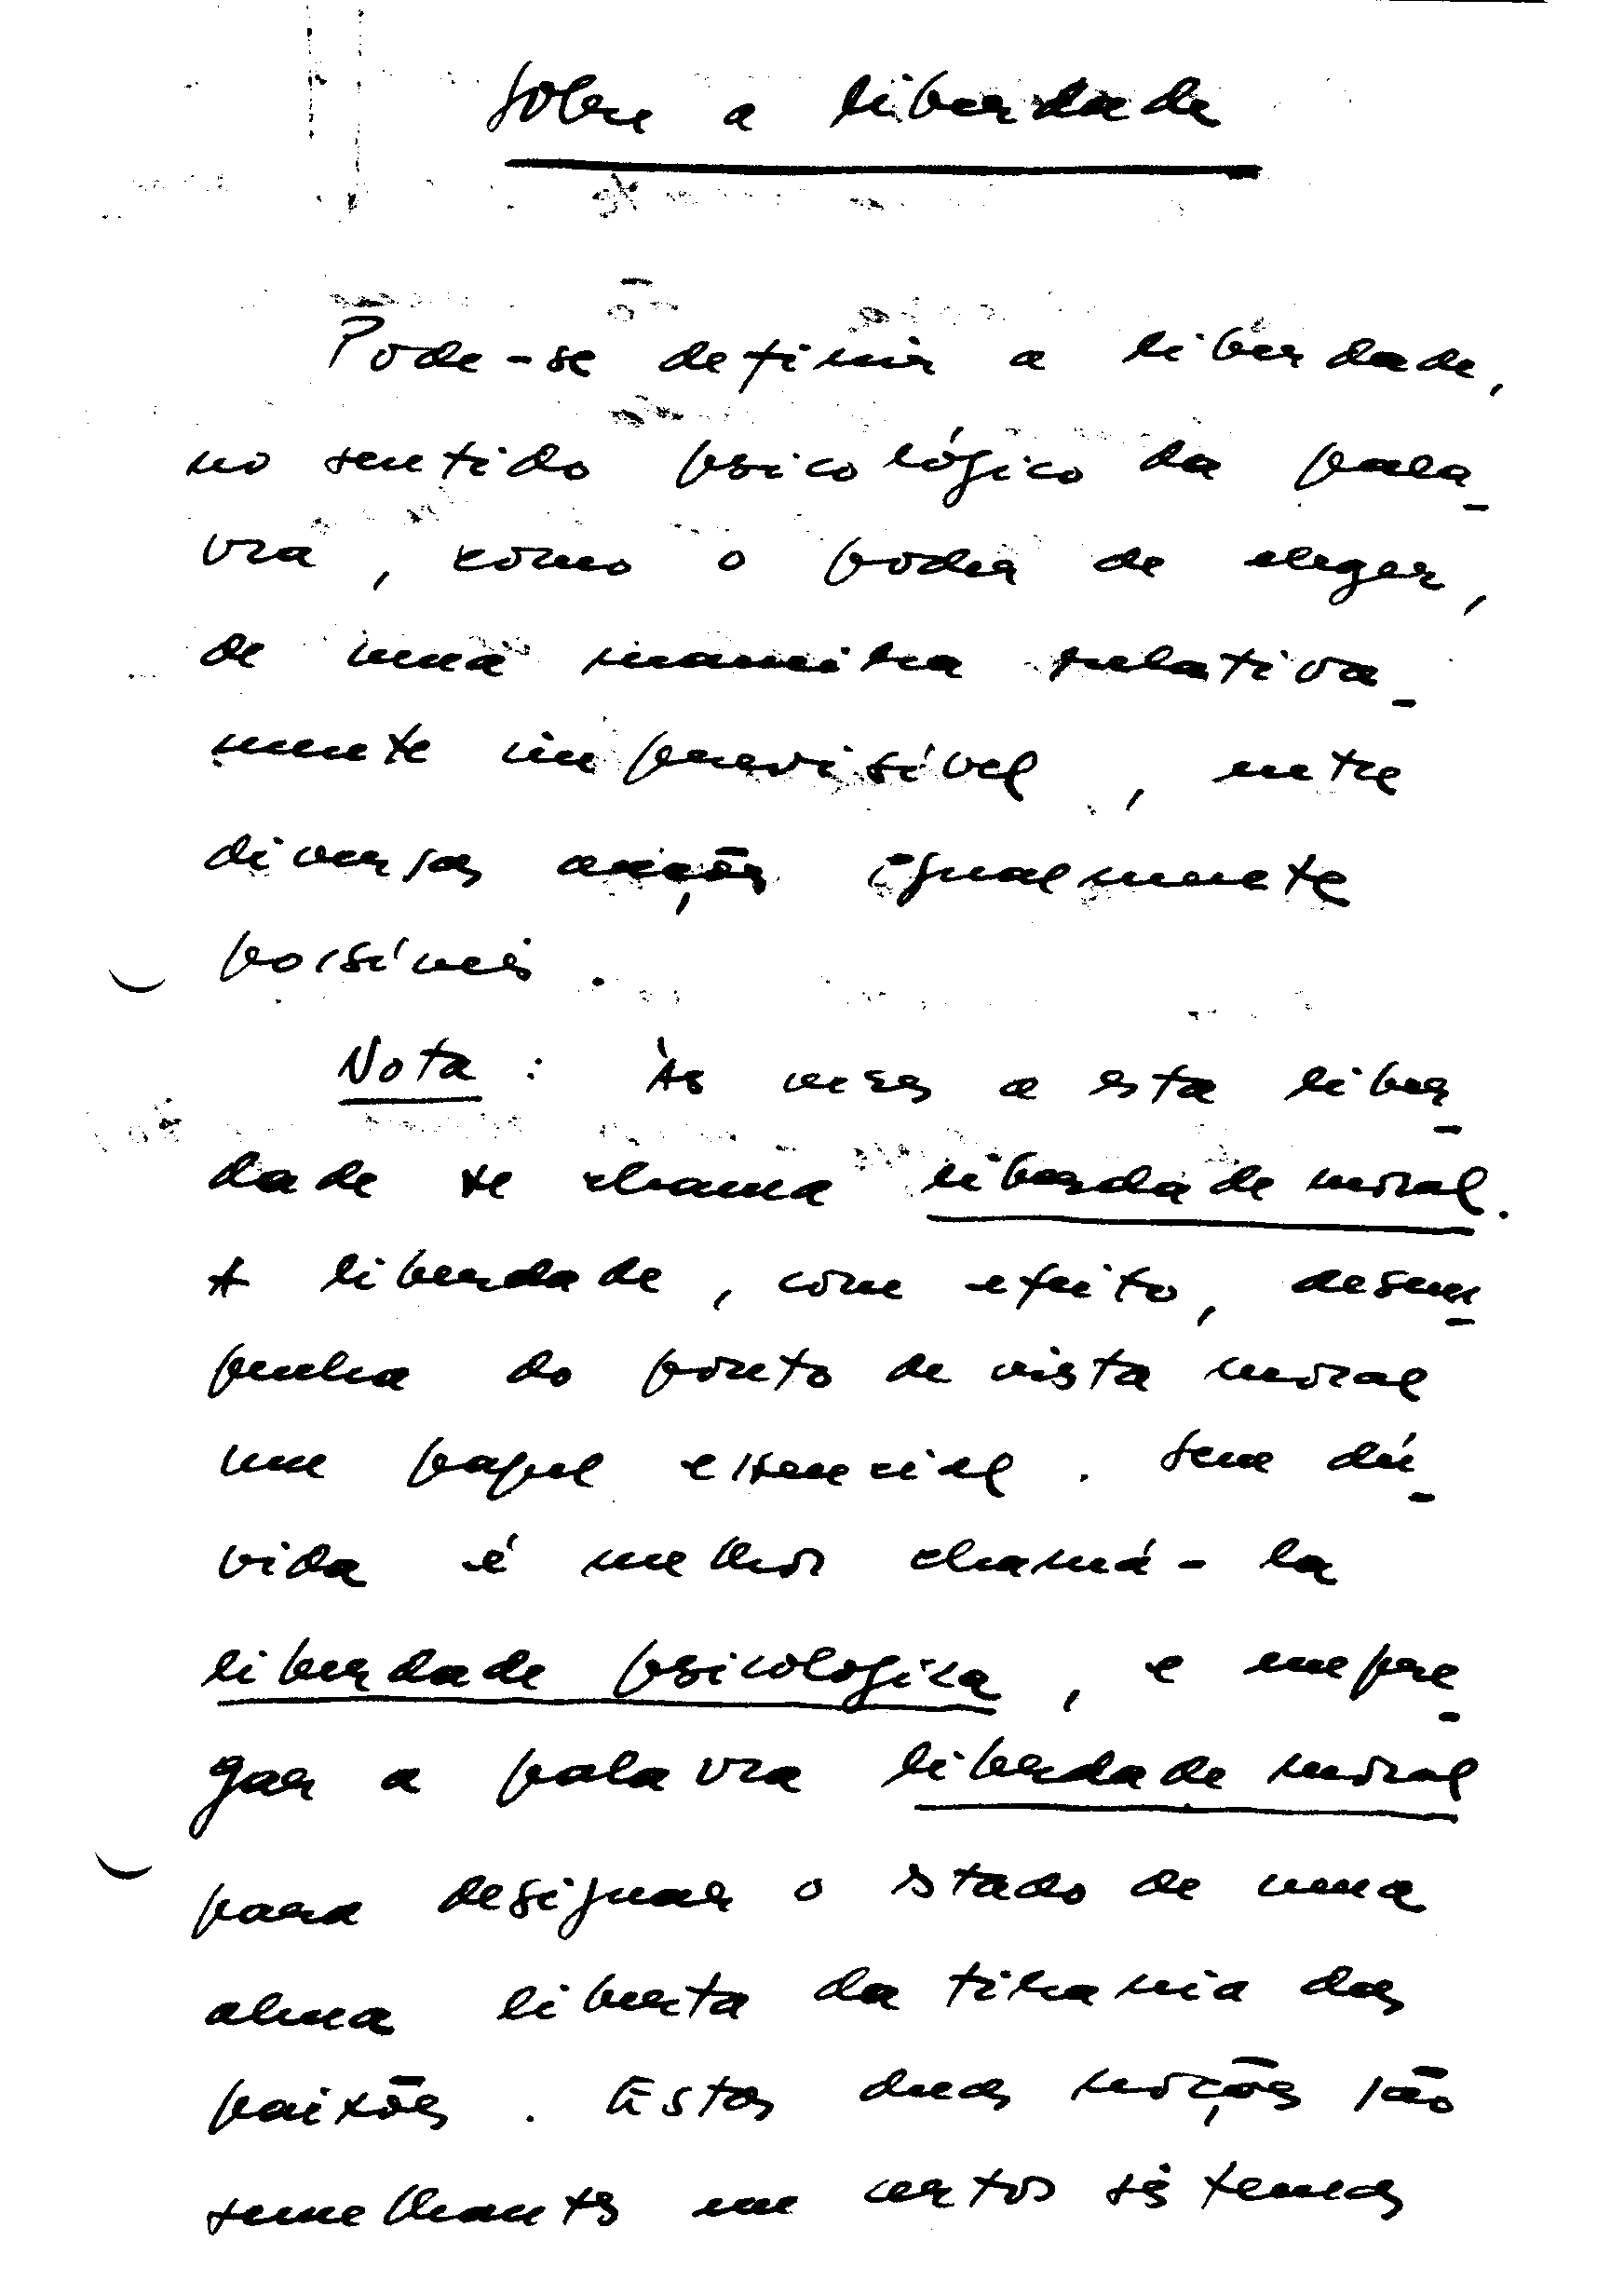 Sobre a liberdade
Pode-se definir a liberdade,
no sentido psicológico da pala-
vra, como o poder de eleger,
de uma maneira relativa-
mente imprevisível, entre
diversas acções igualmente
possíveis.
Nota: Às vezes a esta liber-
dade se chama liberdade moral.
A liberdade, com efeito, desem-
penha do ponto de vista moral
um papel essencial. Sem dú-
vida é melhor chamá-la
liberdade psicologica, e empre-
gar a palavra liberdade moral
para designar o estado de uma
alma liberta da tirania das
paixões. Estas duas noções são
semelhantes em certos sistemas